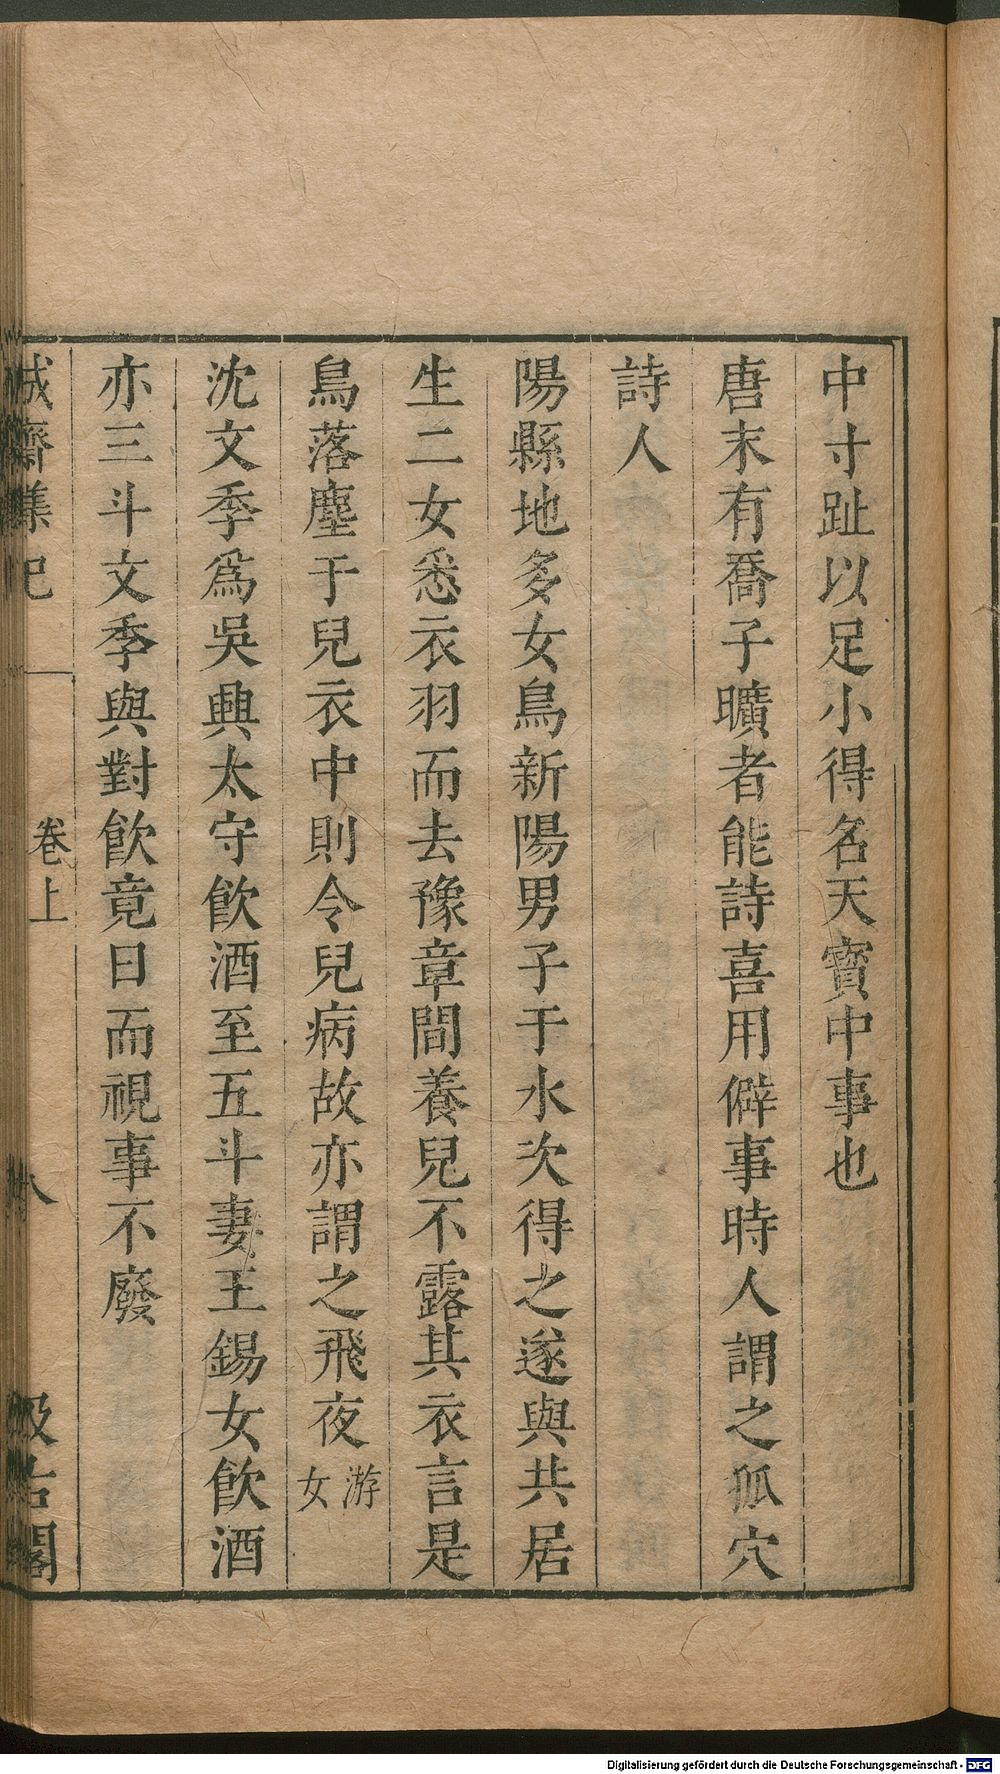 中寸趾以足小得名天寳中事也
唐末有喬子曠者能詩喜用僻事時人謂之狐穴
詩人
陽縣地多女鳥新陽男子于水次得之遂與共居
生二女悉衣羽而去豫章間養兒不露其衣言是
鳥落塵于兒衣中則令兒病故亦謂之飛夜游女
沈文季爲吳興太守飮酒至五斗妻王錫女飮酒
亦三斗文季與對飮竟日而視事不廢
誠齋襍記 卷上 八 汲古閣
Digitalisierung gefördert durch die Deutsche Forschungsgemeinschaft - DFG